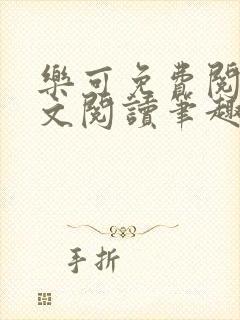 樂可免費閱
文閱讀筆趣
手折